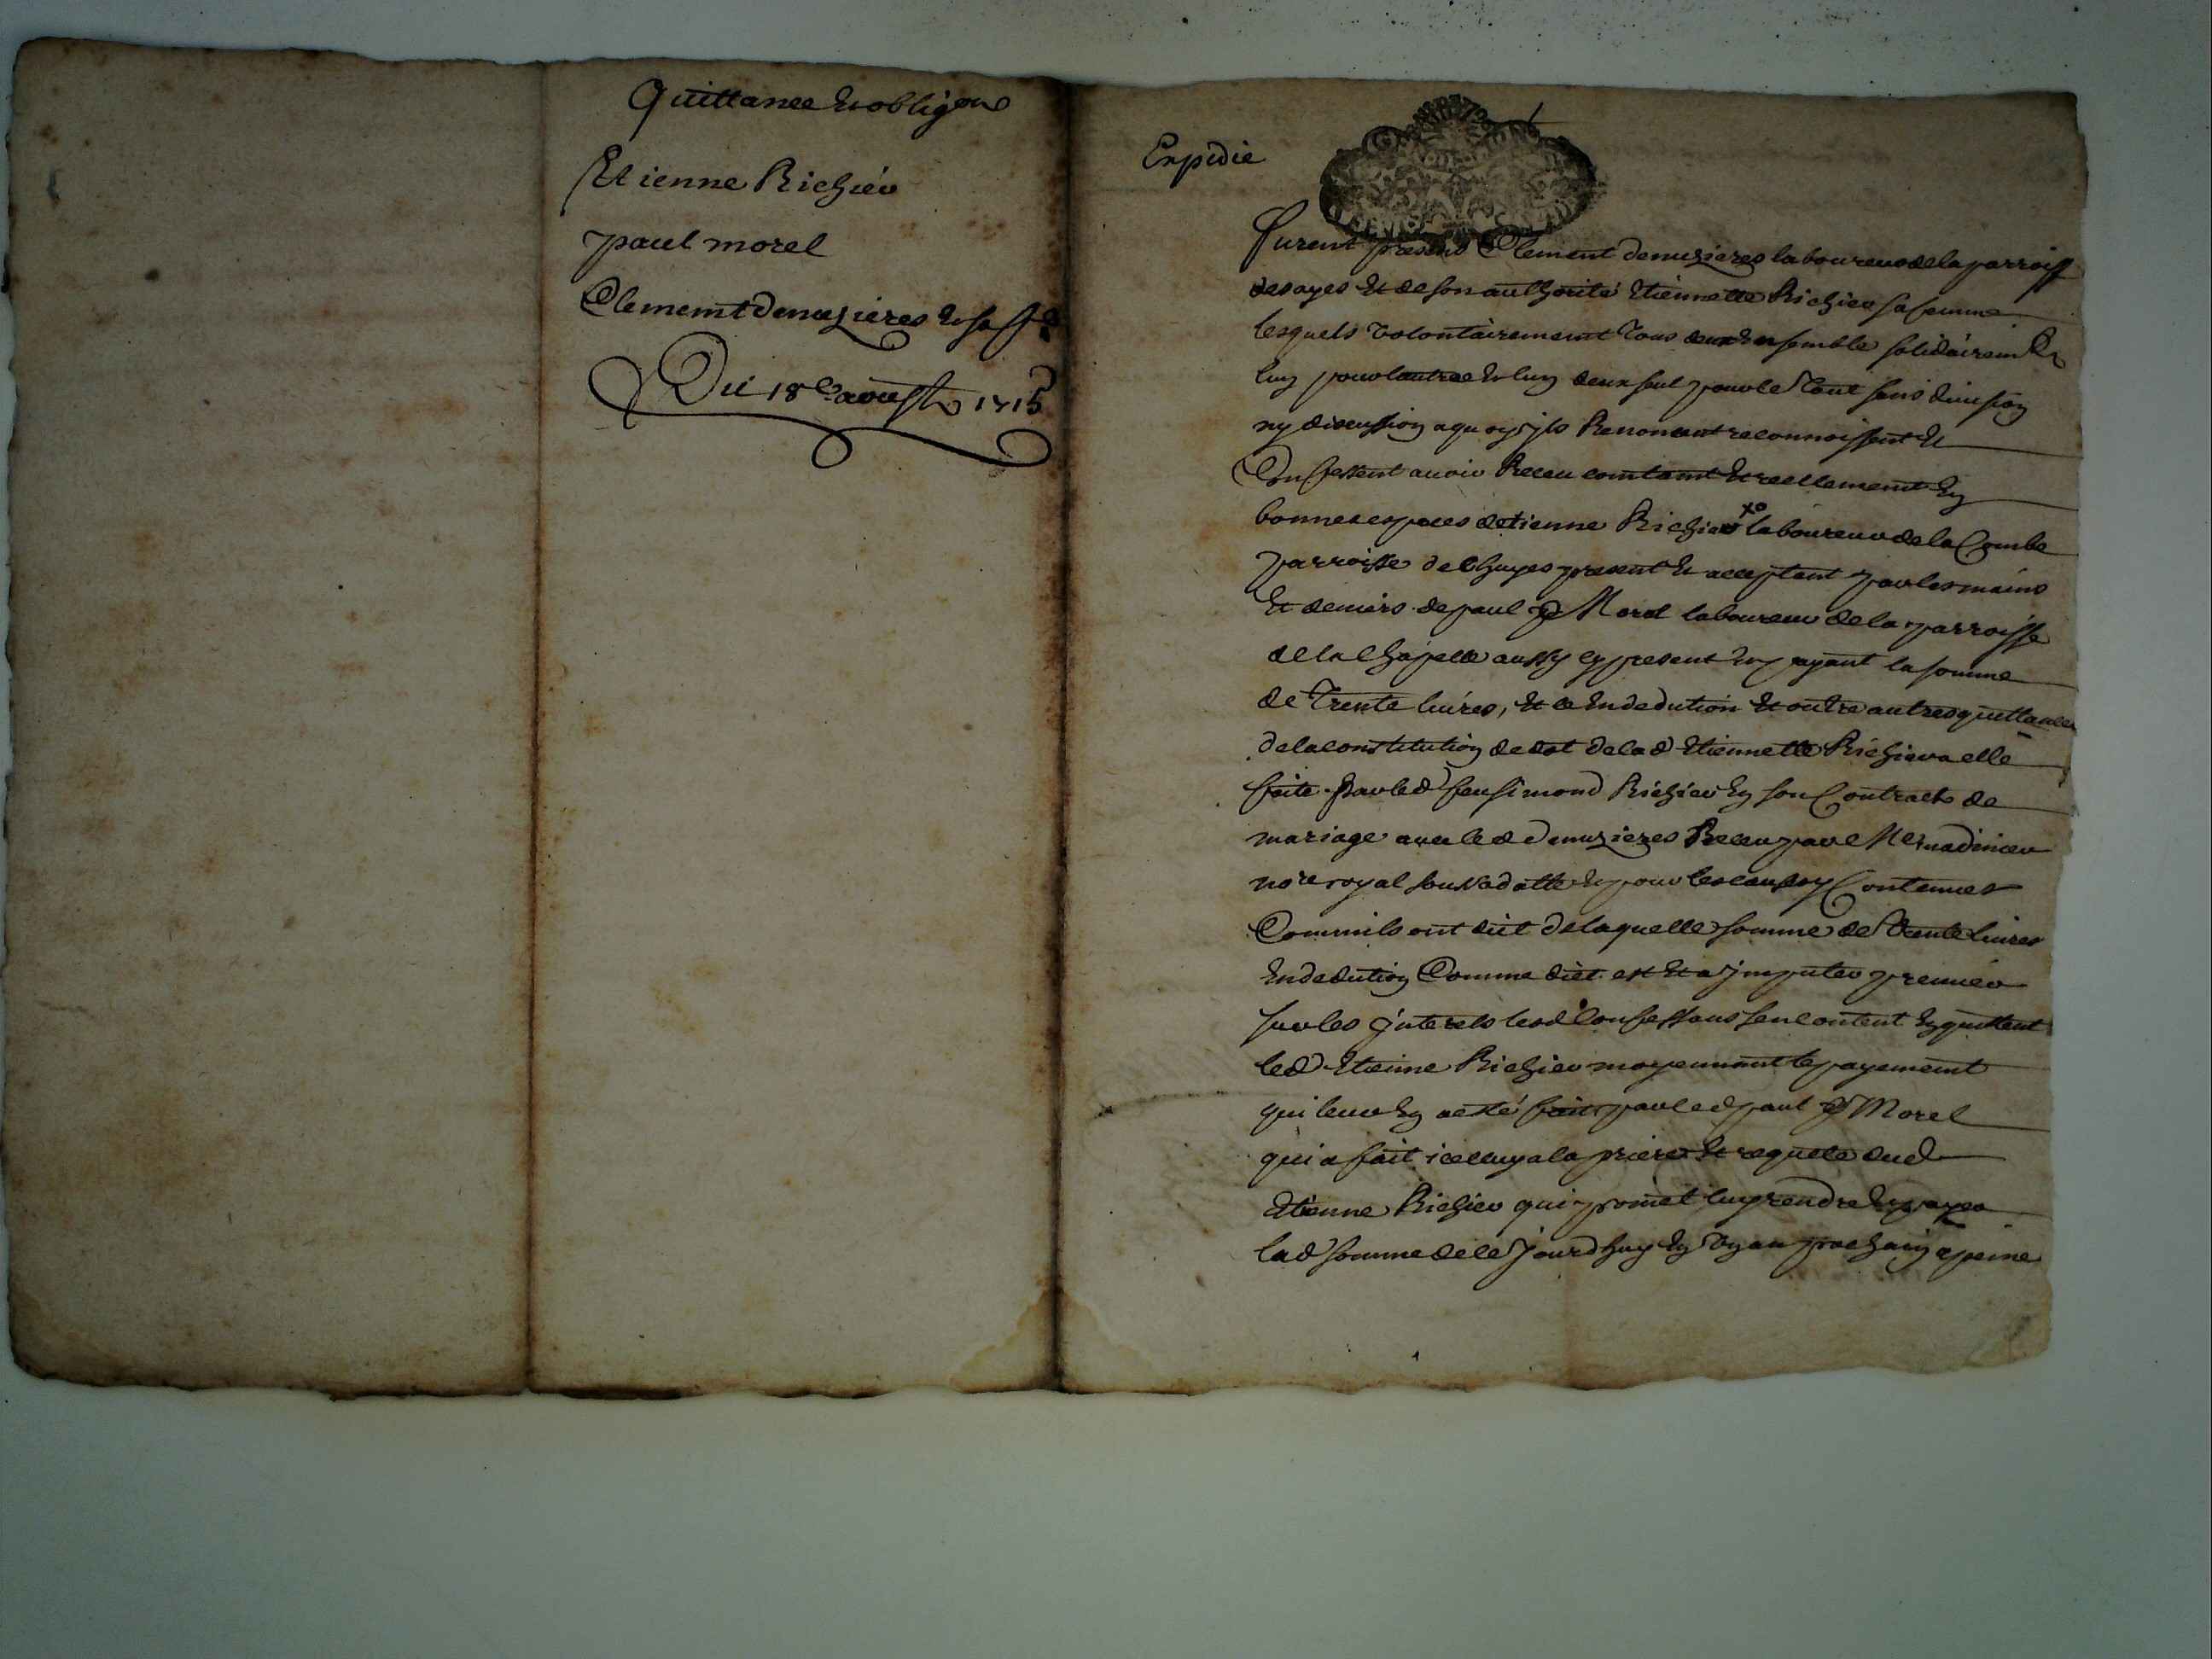 Quittance et obligõn
Etienne Richier
paul morel
Clement demezieres et sa f^e
Du 18^e aoust 1715
Expedie
Furent presens Clement demezieres laboureur de la parroiss
desayes Et de son authorité Etiennette Richier sa femme
lesquels volontairement tous deux ensemble solidairemt Et
lun pour lautre et lun deux seul pour le tout sans division
ny discussion a quoy ils Renoncent reconnoissent Et
Confessent avoir Receu contant Et reellement En
bonnes espaces detienne Richier laboureur de la Combe
parroisse de present Et acceptant par les mains
Et deniers de paul Morel laboureur de la parroisse
de la Chapelle aussy present Et payant la somme
de Trente livres, Et ce En dedution Et outre autres quittances
de la constitution de dot de lad Etiennette Richier a elle
faite par led feu simond Richier En son Contract de
mariage avec led demezieres Receu par Me
nore royal sous sa datte Et pour les causes y Contenues
Comm ils ont dit de laquelle somme de Trente livres
En dedution Comme dit est Et a jmputer premier
sur les jnterets lesd Confessans sen content En quittent
led Etienne Richier moyennant le payement
qui leur En a esté fait par led paul Morel
qui a fait icelluy a la priere Et requete dud
Etienne Richier qui promet luy rendre Et payer
lad somme de ce jourdhuy En Un an prochain a peine